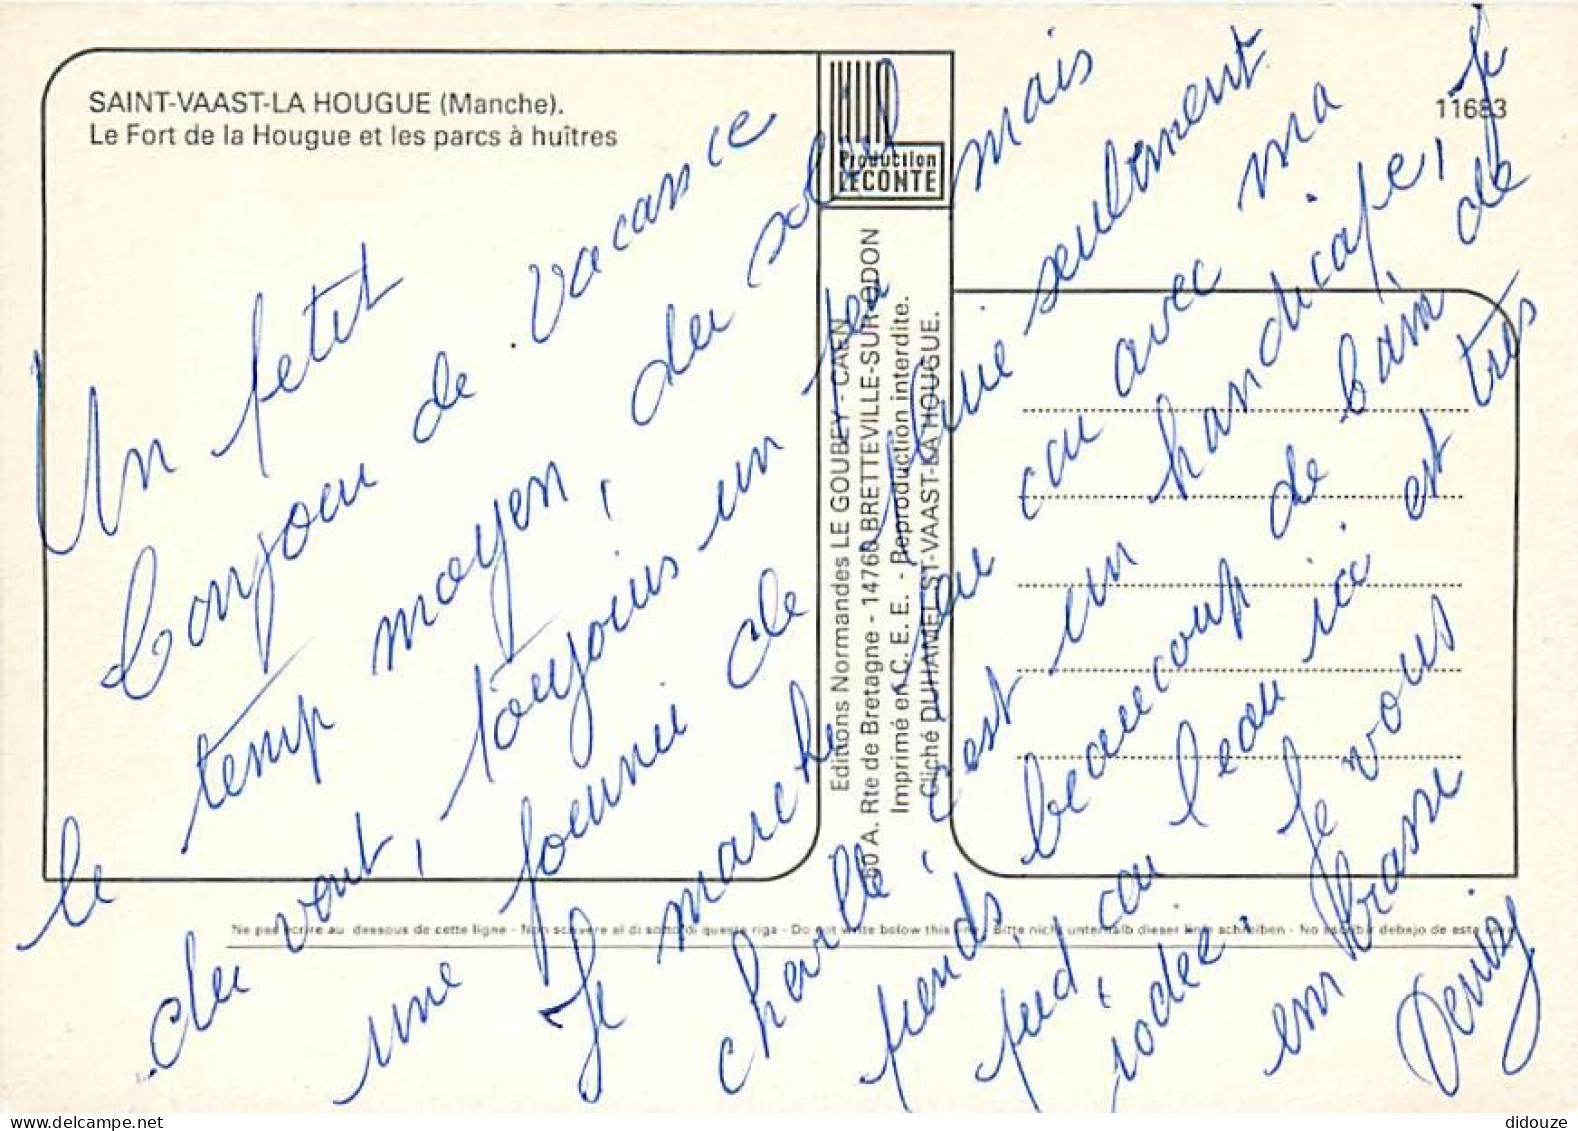 SAINT-VAAST-LA HOUGUE (Manche).
Le Fort de la Hougue et les parcs à huîtres
11683
Production
LECONTE
Editions Normandes LE GOUBEY - CAEN
60 A. Rte de Bretagne - 14760 BRETTEVILLE-SUR-ODON
Imprimé en C. E. E. - Reproduction interdite.
Cliché DUHAMEL ST-VAAST-LA HOUGUE.
Un petit
bonjour de vacance
le temp moyen, du soleil mais
du vent, toujours un
une fournie de pluie seulement
Je marche un peu avec ma
cheville, c'est un handicape, je
prends beaucoup de bain de
pied, l'eau ici est très
iodée. Je vous
embrasse
Denise
Ne pas écrire au dessous de cette ligne - Non scrivere al di sotto di questa riga - Do not write below this line - Bitte nicht unterhalb dieser linie schreiben - No escribir debajo de esta
didouze